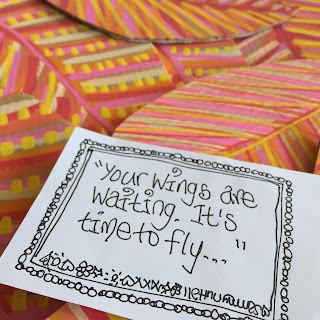 "Your wings are
waiting. It's
time to fly..."